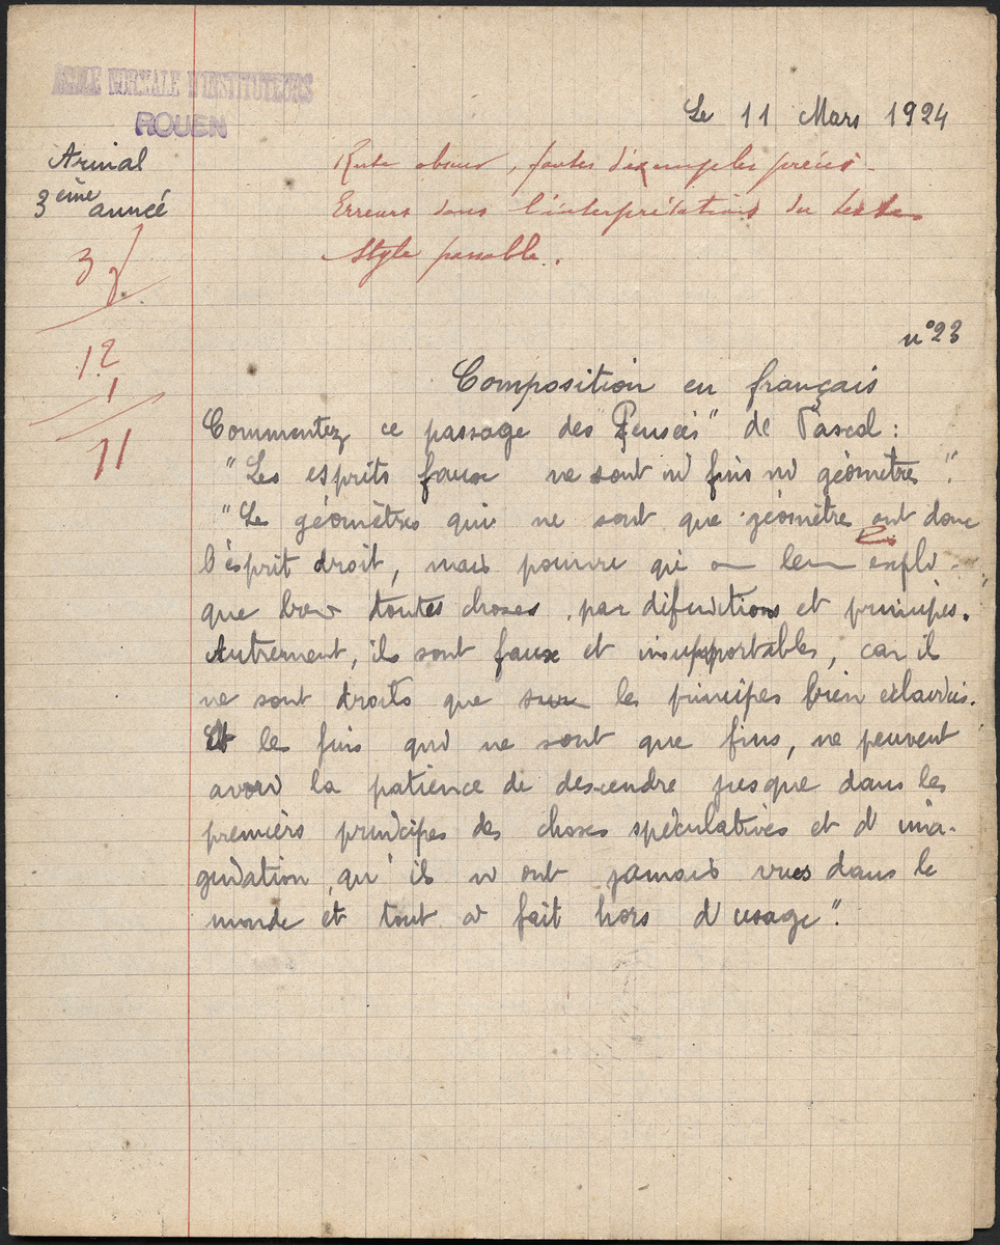 ECOLE NORMALE D'INSTITUTEURS
ROUEN
Le 11 Mars 1924
Arinal
3ème année
Reste obscur, fautes d'exemples précis.
Erreurs dans l'interprétation du texte
Style passable.
3
12
1
11
n°23
Composition en français
Commentez ce passage des Pensées" de Pascal :
"Les esprits faux ne sont ni fins ni géomètres".
"Les géomètres qui ne sont que géomètre ont donc
l'esprit droit, mais pourvu qu'on leur expli-
que bien toutes choses par définitions et principes.
Autrement, ils sont faux et insupportables, car il
ne sont droits que sur les principes bien éclaircis.
Et les fins qui ne sont que fins, ne peuvent
avoir la patience de descendre jusque dans les
premiers principes des choses spéculatives et d'ima-
gination, qu'ils n'ont jamais vues dans le
monde et tout à fait hors d'usage".